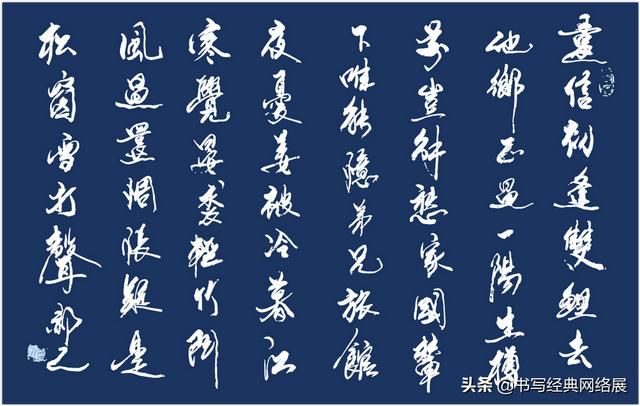 遠信初逢雙鯉去
他鄉正遇一陽生樽
前豈解愁家國輦
下唯能憶弟兄旅館
夜憂姜被冷暮江
寒覺晏裘輕竹門
風過還惆悵疑是
松窗雪打聲
头条 @书写经典网络展